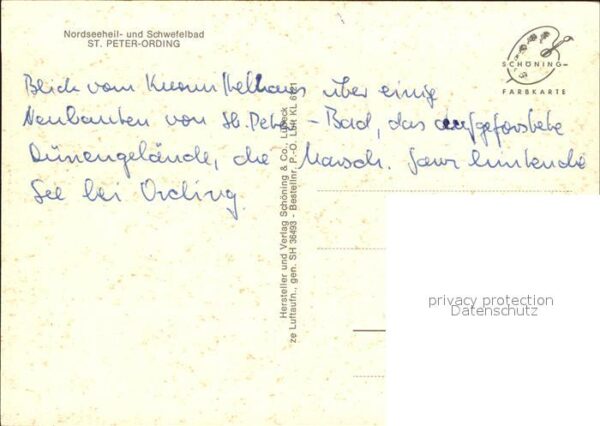 Nordseeheil- und Schwefelbad
ST. PETER-ORDING
SCHÖNING-
FARBKARTE
Blick vom über einig
Neubauten von St. Peter - Bad, das aufgeforstete
Dünengelände, die Marsch. Ganz hinten die
See bei Ording.
Hersteller und Verlag Schöning & Co., Lübeck
ze Luftaufn., gen. SH 36493 - Bestellnr. P.-O. Luft KL 6121
privacy protection
Datenschutz